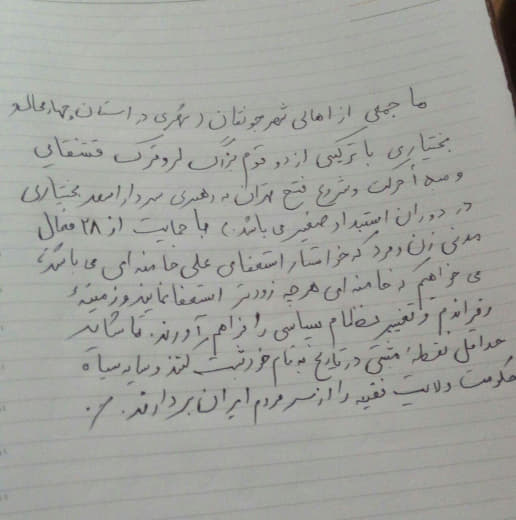 ما جمعی از اهالی شهر جونقان (شهری در استان چهارمحال و
بختیاری با ترکیبی از دو قوم بزرگ لر و ترک قشقایی
و مبدأ حرکت و شروع فتح تهران به رهبری سردار اسعد بختیاری
در دوران استبداد صغیر می باشد) با حمایت از ۲۸ فعال
مدنی زن و مرد که خواستار استعفای علی خامنه ای می باشند،
می خواهیم که خامنه ای هر چه زودتر استعفا نمایند و زمینهٔ
رفراندم و تغییر نظام سیاسی را فراهم آورند. تا شاید
حداقل نقطهٔ مثبتی در تاریخ به نام خود ثبت کنند و سایه سیاه
حکومت ولایت فقیه را از سر مردم ایران بردارند. /.